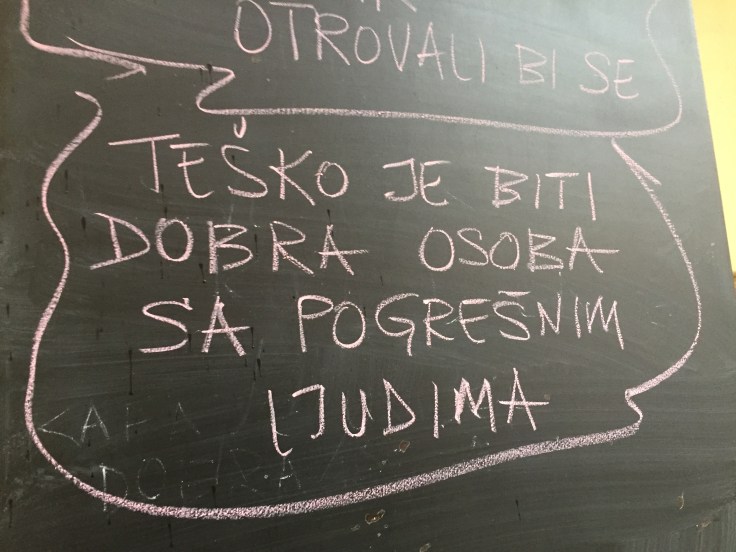 OTROVALI BI SE
TEŠKO JE BITI
DOBRA OSOBA
SA POGREŠNIM
LJUDIMA